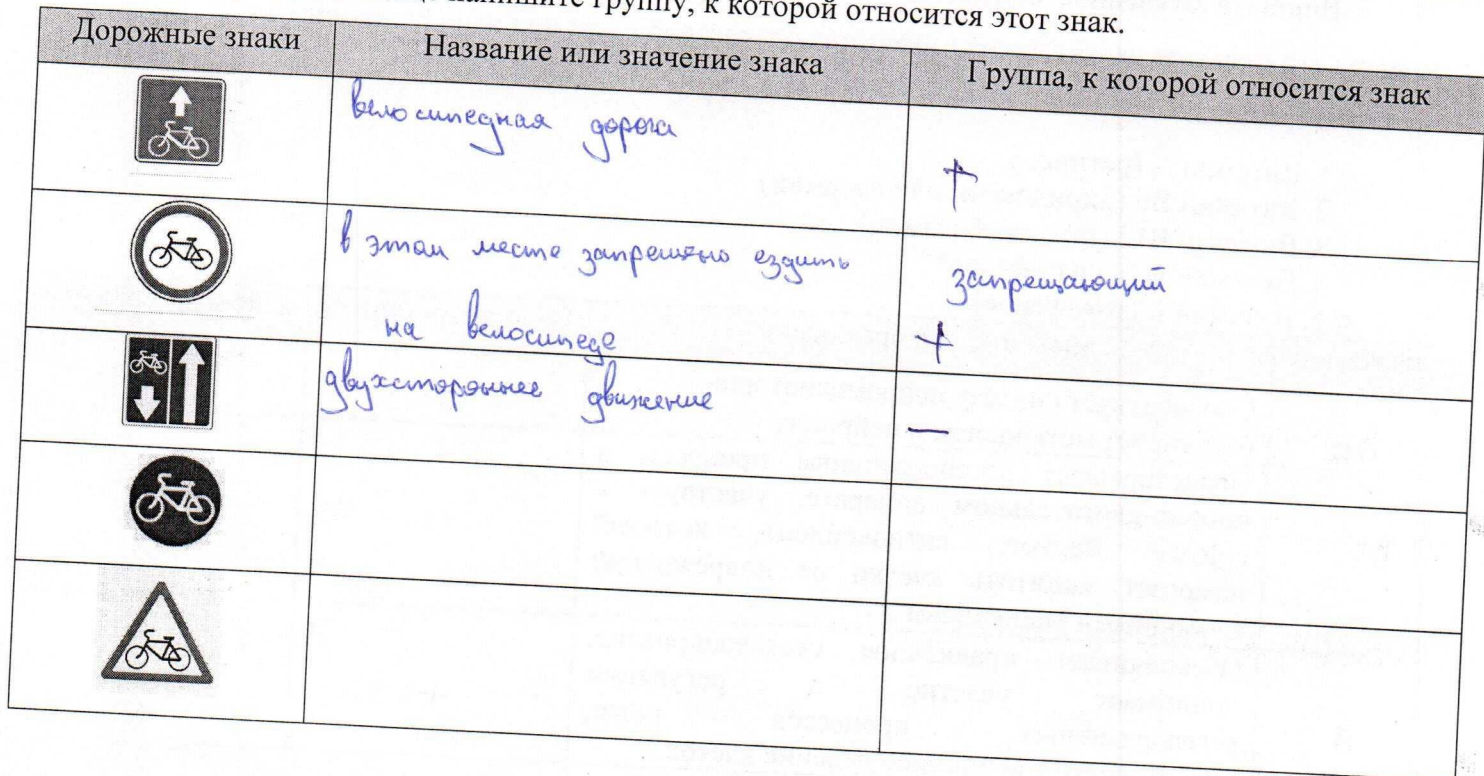 напишите группу, к которой относится этот знак.
Дорожные знаки Название или значение знака Группа, к которой относится знак
велосипедная дорога
+
в этом месте запрещено ездить запрещающий
на велосипеде +
двухстороннее движение
—